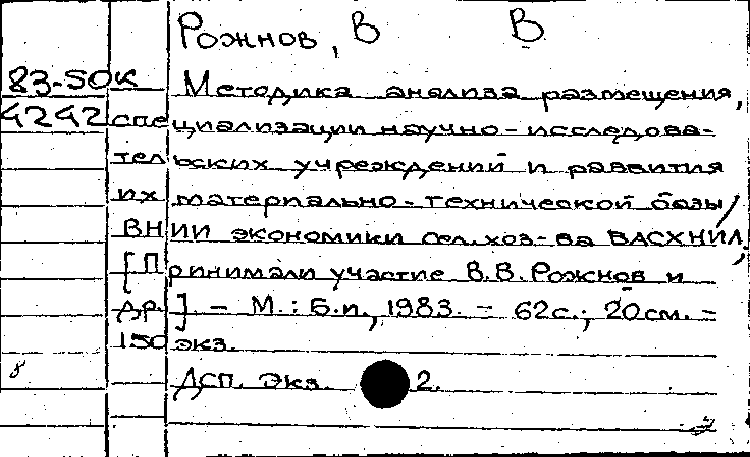 Рожнов, В В
83-50к Методика анализа размещения,
4242 специализации научно-исследова-
тельских учреждений и развития
их материально-технической базы/
ВНИИ экономики сел. хоз-ва ВАСХНИЛ;
[Принимали участие В.В. Рожнов и
др.] - М.: Б.и., 1983. - 62с.; 20см. -
150 экз.
8 ДСП. Экз. 2.